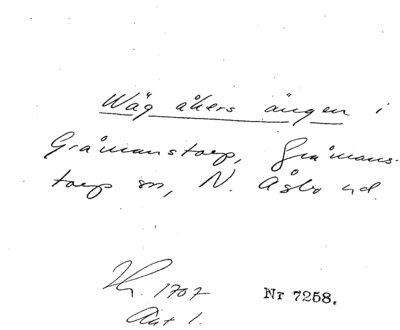 Wäg åkers ängen i
Gråmanstorp, Gråmans-
torp sn, N. Åsbo hd.
1707
Akt 1.
Nr 7258.